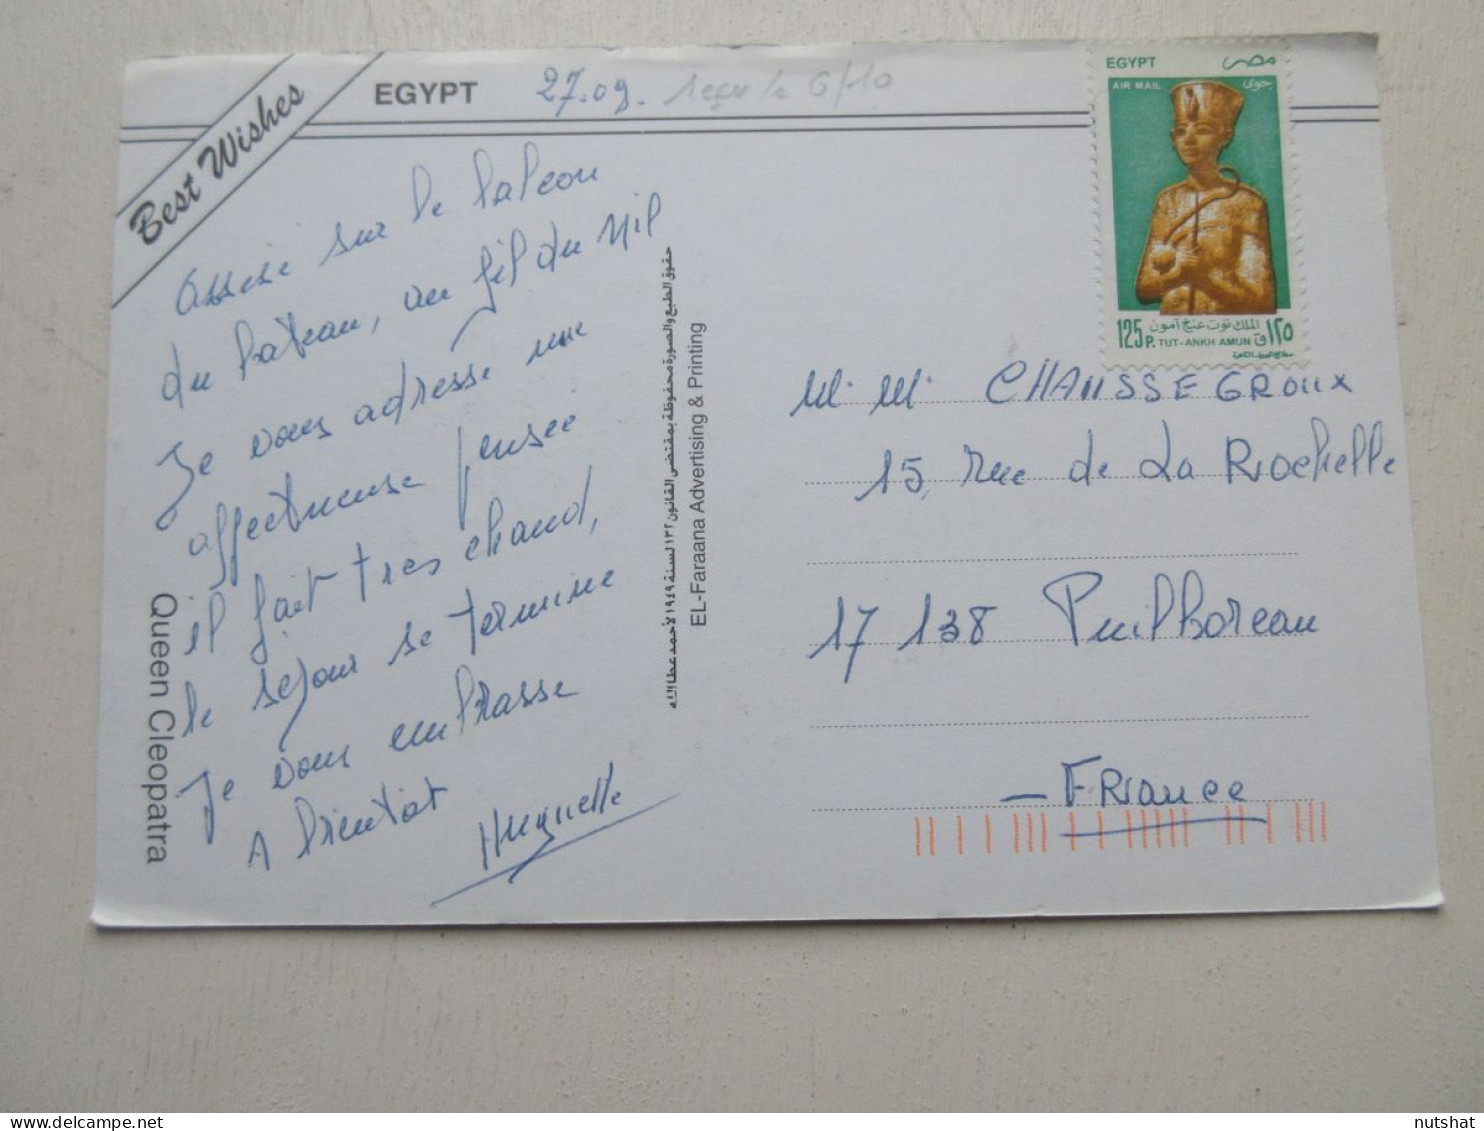 Best Wishes
EGYPT
27.09. reçu le 6/10
Assise sur le balcon
du bateau, au fil du Nil
Je vous adresse une
affectueuse pensée
il fait très chaud,
le séjour se termine
Je vous embrasse
A bientôt
Huguette
Queen Cleopatra
حقوق الطبع والصورة محفوظة بمقتضى القانون ١٣٢ لسنة ١٩٤٩ لأحمد عطا الله
EL-Faraana Advertising & Printing
EGYPT مصر
AIR MAIL جوى
125 P. الملك توت عنخ آمون ١٢٥ ق
TUT-ANKH AMUN
M. M. CHAUSSEGROUX
15, rue de La Rochelle
17 138 Puilboreau
— FRANCE
nutshat